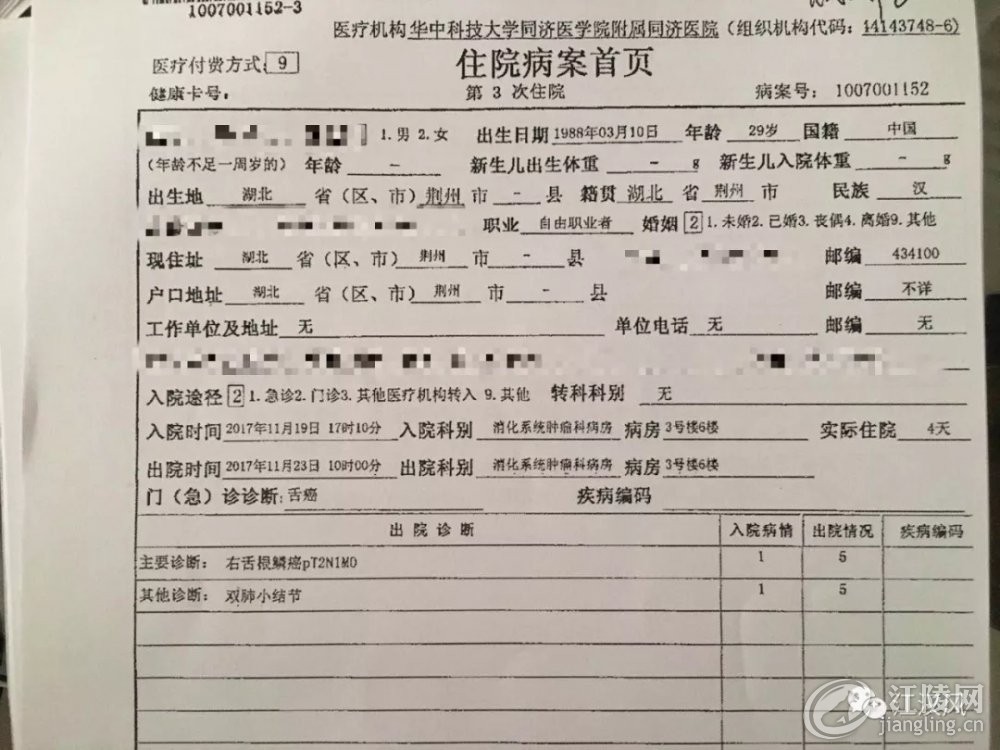 1007001152-3
医疗机构 华中科技大学同济医学院附属同济医院 (组织机构代码: 14143748-6)
医疗付费方式: 9 住院病案首页
健康卡号: 第 3 次住院 病案号: 1007001152
1.男 2.女 出生日期 1988年03月10日 年龄 29岁 国籍 中国
(年龄不足一周岁的) 年龄 - 新生儿出生体重 - g 新生儿入院体重 - g
出生地 湖北 省(区、市) 荆州 市 - 县 籍贯 湖北 省 荆州 市 民族 汉
职业 自由职业者 婚姻 2 1.未婚2.已婚3.丧偶4.离婚9.其他
现住址 湖北 省(区、市) 荆州 市 - 县 邮编 434100
户口地址 湖北 省(区、市) 荆州 市 - 县 邮编 不详
工作单位及地址 无 单位电话 无 邮编 无
入院途径 2 1.急诊2.门诊3.其他医疗机构转入 9.其他 转科科别 无
入院时间 2017年11月19日 17时10分 入院科别 消化系统肿瘤科病房 病房 3号楼6楼 实际住院 4天
出院时间 2017年11月23日 10时00分 出院科别 消化系统肿瘤科病房 病房 3号楼6楼
门(急)诊诊断: 舌癌 疾病编码
出院诊断 入院病情 出院情况 疾病编码
主要诊断: 右舌根鳞癌pT2N1M0 1 5
其他诊断: 双肺小结节 1 5
江陵网
jiangling.cn